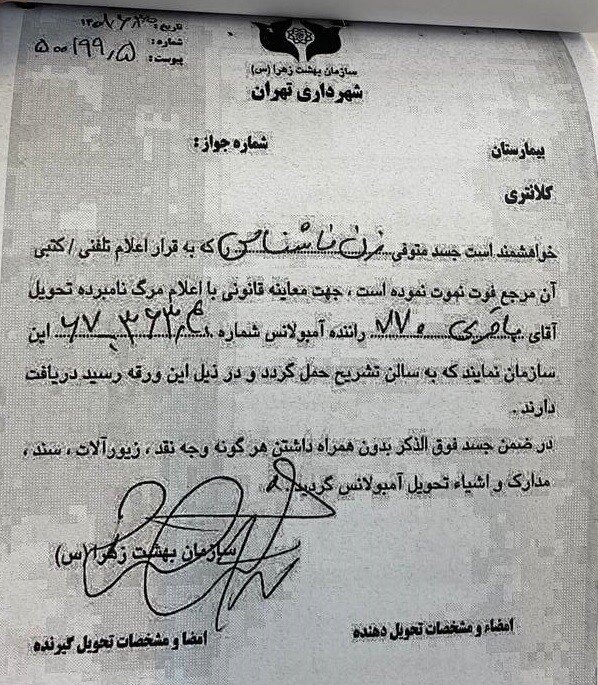 تاریخ:
شماره:
پیوست: ۵۰۰۱۹۹٫۵
سازمان بهشت زهرا (س)
شهرداری تهران
بیمارستان شماره جواز :
کلانتری
خواهشمند است جسد متوفی زن ناشناس که به قرار اعلام تلفنی / کتبی
آن مرجع فوت نموت نموده است ، جهت معاینه قانونی با اعلام مرگ نامبرده تحویل
آقای باقری ۷۷۰ راننده آمبولانس شماره ۶۷ ۳۶۳ این
سازمان نمایند که به سالن تشریح حمل گردد و در ذیل این ورقه رسید دریافت
دارند .
در ضمن جسد فوق الذکر بدون همراه داشتن هر گونه وجه نقد ، زیورآلات ، سند ،
مدارک و اشیاء تحویل آمبولانس گردید
سازمان بهشت زهرا (س)
امضاء و مشخصات تحویل دهنده امضا و مشخصات تحویل گیرنده